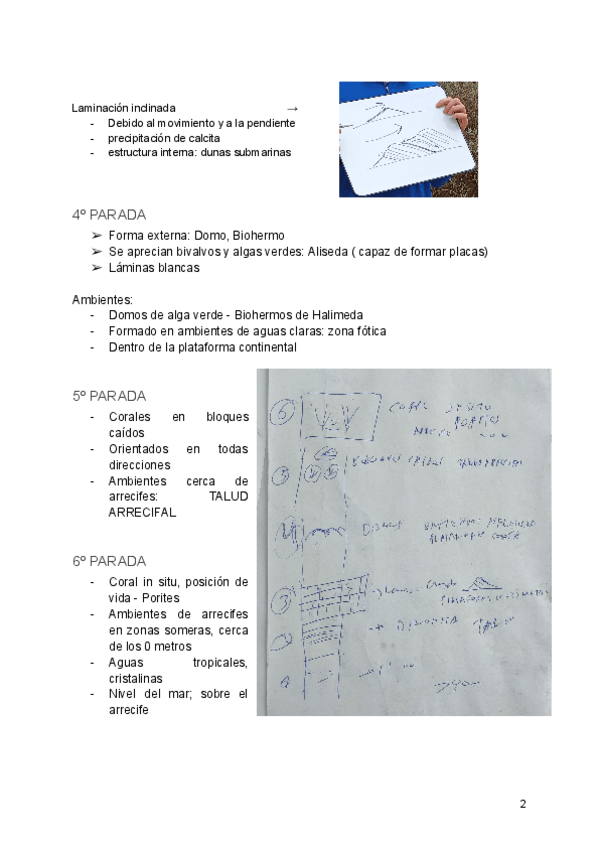 Laminación inclinada →
- Debido al movimiento y a la pendiente
- precipitación de calcita
- estructura interna: dunas submarinas
4º PARADA
➢ Forma externa: Domo, Biohermo
➢ Se aprecian bivalvos y algas verdes: Aliseda ( capaz de formar placas)
➢ Láminas blancas
Ambientes:
- Domos de alga verde - Biohermos de Halimeda
- Formado en ambientes de aguas claras: zona fótica
- Dentro de la plataforma continental
5º PARADA
- Corales en bloques
caídos
- Orientados en todas
direcciones
- Ambientes cerca de
arrecifes: TALUD
ARRECIFAL
6º PARADA
- Coral in situ, posición de
vida - Porites
- Ambientes de arrecifes
en zonas someras, cerca
de los 0 metros
- Aguas tropicales,
cristalinas
- Nivel del mar; sobre el
arrecife
6
5
4
3
2
1
2